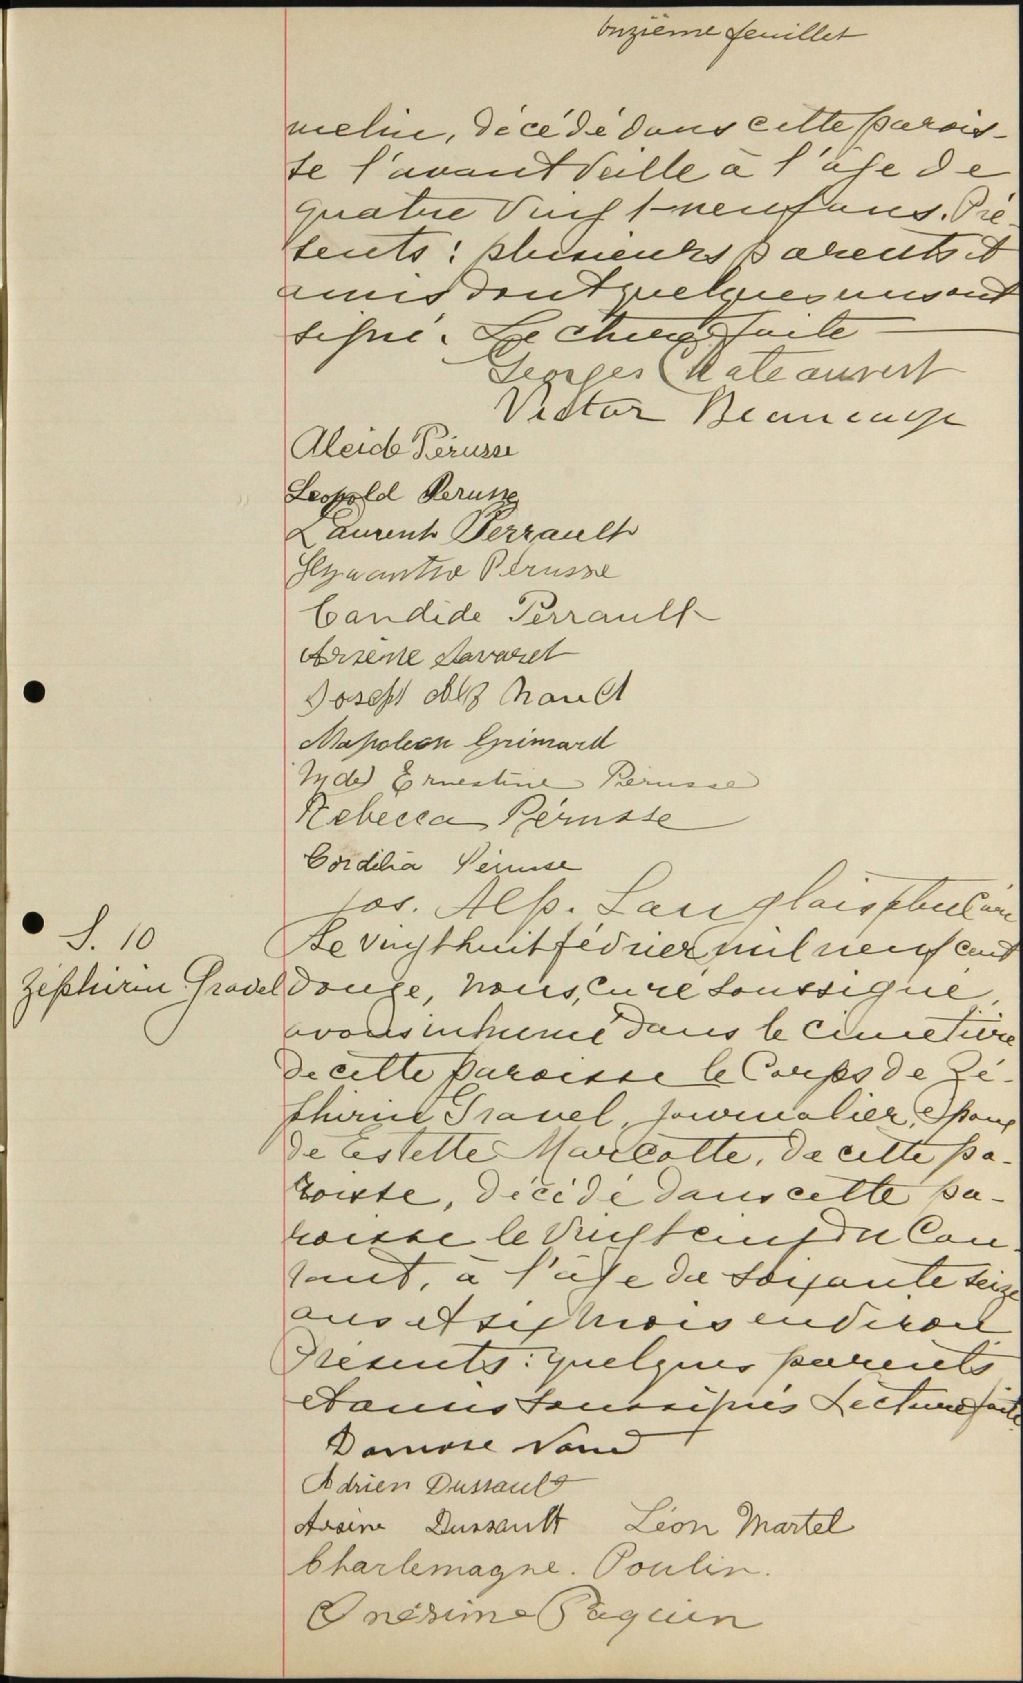 onzième feuillet
melin, décédé dans cette parois-
se l'avant veille à l'âge de
quatre vingt-neuf ans. Pré-
sents : plusieurs parents et
amis dont quelques uns ont
signé. Lecture faite
Georges Chateauvert
Victor Beaucage
Alcide Pérusse
Leopold Perusse
Laurent Perrault
Hyacinthe Perusse
Candide Perrault
Arsène Savaret
Joseph Naud
Napoleon Grimard
Mde Ernestine Pérusse
Rebecca Pérusse
Cordélia Pérusse
Jos. Alp. Langlois ptre Curé
S. 10
Zéphirin Gravel
Le vingt huit février mil neuf cent
douze, nous, curé soussigné,
avons inhumé dans le cimetière
de cette paroisse le Corps de Zé-
phirin Gravel, journalier, époux
de Estelle Marcotte, de cette pa-
roisse, décédé dans cette pa-
roisse le vingt cinq du Cou-
rant, à l'âge de soixante seize
ans et six mois environ
Présents : quelques parents
et amis soussignés Lecture faite.
Damase Naud
Adrien Dussault
Arsène Dussault Léon Martel
Charlemagne. Poulin.
Onésime Paquin